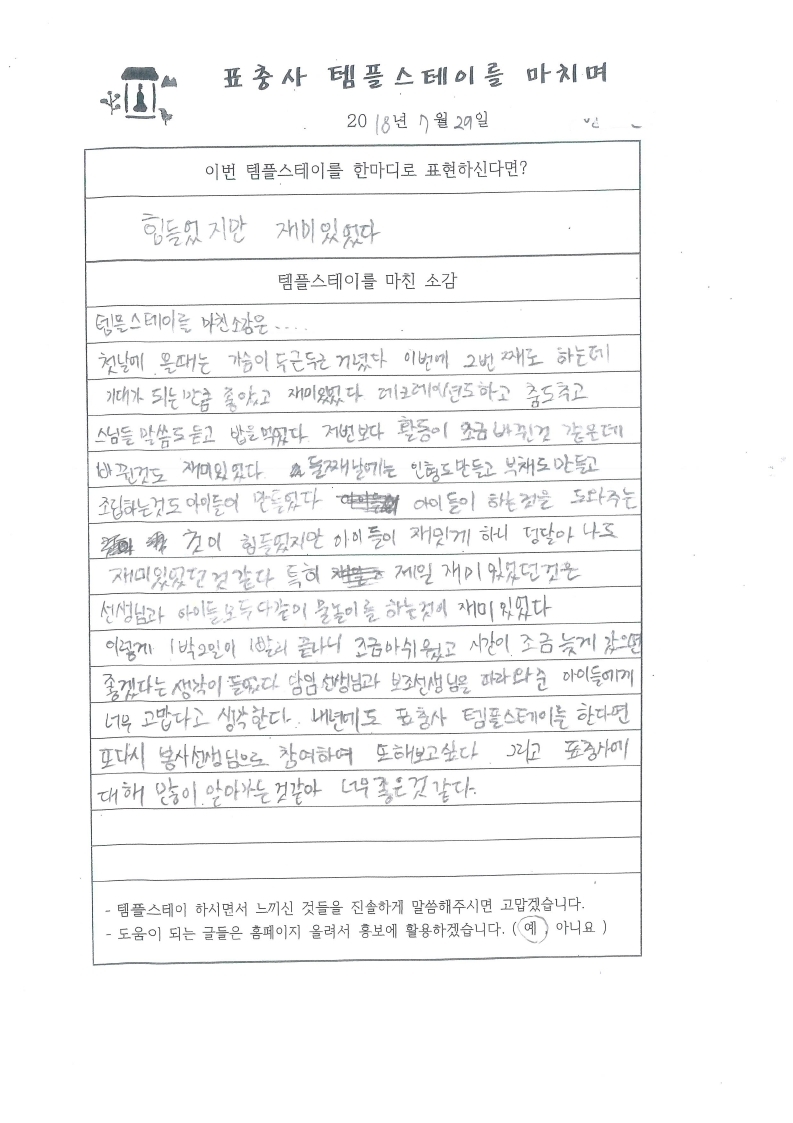 표충사 템플스테이를 마치며
2018년 7월 29일
이번 템플스테이를 한마디로 표현하신다면?
힘들었지만 재미있었다
템플스테이를 마친 소감
템플스테이를 마친소감은....
첫날에 올때는 가슴이 두근두근 거렸다 이번에 2번째로 하는데
기대가 되는만큼 좋았고 재미있었다 데코레이션도하고 춤도추고
스님들 말씀도 듣고 밥을먹었다 저번보다 활동이 조금 바뀐건 같은데
바뀐것도 재미있었다 둘째날에는 인형도만들고 부채도 만들고
조립하는것도 아이들이 만들었다 아이들이 하는것을 도와주는
것이 힘들었지만 아이들이 재밌게 하니 덩달아 나도
재미있었던것 같다 특히 제일 재미있었던것은
선생님과 아이들 모두 다같이 물놀이를 하는것이 재미있었다
이렇게 1박2일이 1빨리 끝나니 조금아쉬웠고 시간이 조금 늦게 갔으면
좋겠다는 생각이 들었다 담임선생님과 보조선생님을 따라와준 아이들에게
너무 고맙다고 생각한다. 내년에도 표충사 템플스테이를 한다면
또다시 봉사선생님으로 참여하여 또해보고싶다 그리고 표충사에
대해 많이 알아가는것같아 너무좋은것 같다.
- 템플스테이 하시면서 느끼신 것들을 진솔하게 말씀해주시면 고맙겠습니다.
- 도움이 되는 글들은 홈페이지 올려서 홍보에 활용하겠습니다. ( 예 , 아니요 )